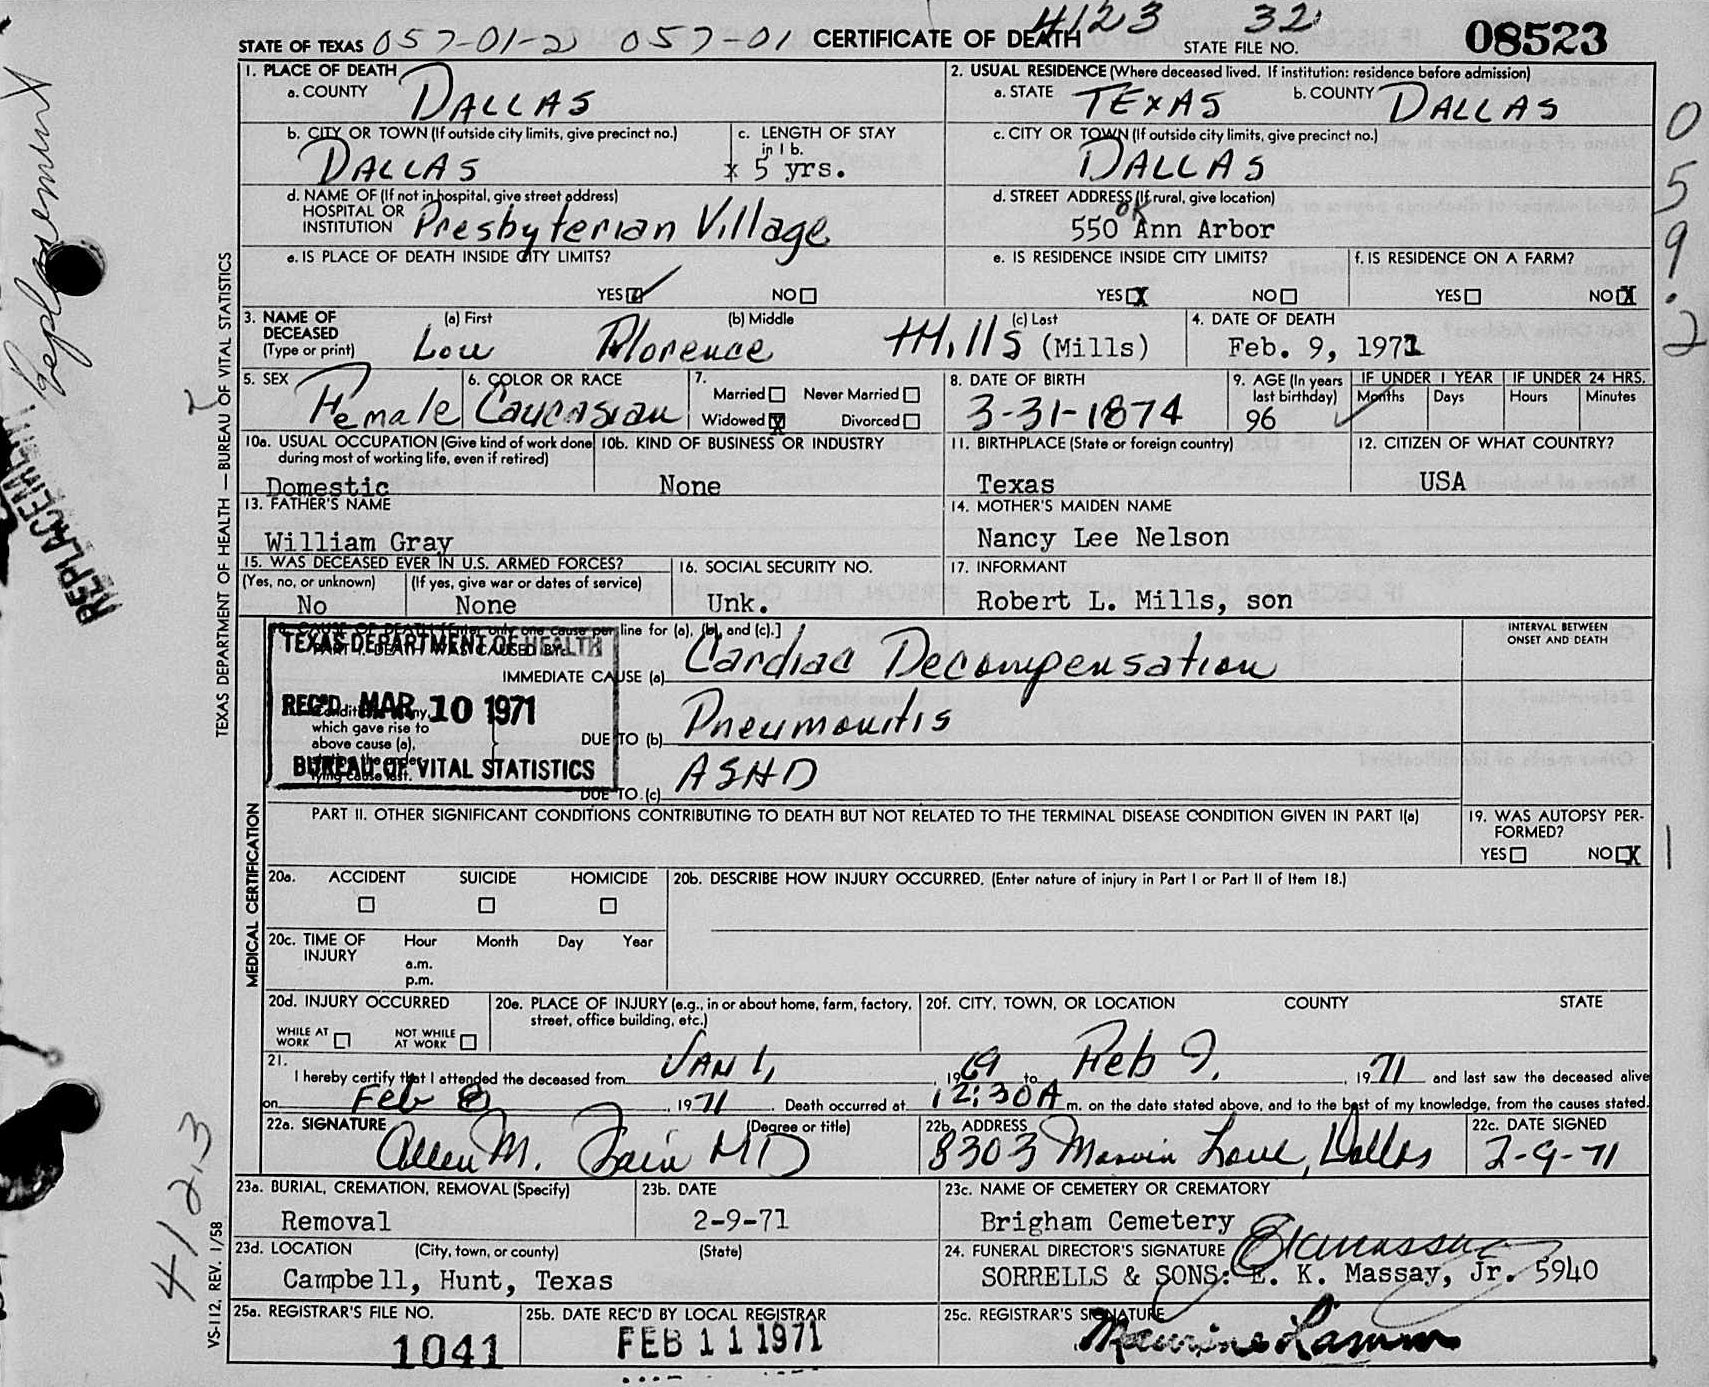 4123 32
STATE OF TEXAS 057-01-2 057-01 CERTIFICATE OF DEATH STATE FILE NO. 08523
1. PLACE OF DEATH
a. COUNTY DALLAS
2. USUAL RESIDENCE (Where deceased lived. If institution: residence before admission)
a. STATE TEXAS b. COUNTY DALLAS
b. CITY OR TOWN (If outside city limits, give precinct no.)
DALLAS
c. LENGTH OF STAY
in 1 b.
x 5 yrs.
c. CITY OR TOWN (If outside city limits, give precinct no.)
DALLAS
d. NAME OF (If not in hospital, give street address)
HOSPITAL OR
INSTITUTION Presbyterian Village
d. STREET ADDRESS (If rural, give location)
OK
550 Ann Arbor
e. IS PLACE OF DEATH INSIDE CITY LIMITS?
YES NO
e. IS RESIDENCE INSIDE CITY LIMITS?
YES X NO
f. IS RESIDENCE ON A FARM?
YES NO X
059.2
3. NAME OF
DECEASED
(Type or print)
(a) First (b) Middle (c) Last
Lou Florence Mills (Mills)
4. DATE OF DEATH
Feb. 9, 1971
5. SEX
Female
6. COLOR OR RACE
Caucasian
7.
Married Never Married
Widowed X Divorced
8. DATE OF BIRTH
3-31-1874
9. AGE (In years
last birthday)
96
IF UNDER 1 YEAR
Months Days
IF UNDER 24 HRS.
Hours Minutes
10a. USUAL OCCUPATION (Give kind of work done
during most of working life, even if retired)
Domestic
10b. KIND OF BUSINESS OR INDUSTRY
None
11. BIRTHPLACE (State or foreign country)
Texas
12. CITIZEN OF WHAT COUNTRY?
USA
13. FATHER'S NAME
William Gray
14. MOTHER'S MAIDEN NAME
Nancy Lee Nelson
15. WAS DECEASED EVER IN U.S. ARMED FORCES?
(Yes, no, or unknown) (If yes, give war or dates of service)
No None
16. SOCIAL SECURITY NO.
Unk.
17. INFORMANT
Robert L. Mills, son
18. CAUSE OF DEATH [Enter only one cause per line for (a), (b), and (c).]
PART I. DEATH WAS CAUSED BY:
IMMEDIATE CAUSE (a) Cardiac Decompensation
INTERVAL BETWEEN
ONSET AND DEATH
TEXAS DEPARTMENT OF HEALTH
REC'D MAR 10 1971
BUREAU OF VITAL STATISTICS
Conditions, if any,
which gave rise to
above cause (a),
stating the under-
lying cause last.
DUE TO (b) Pneumonitis
DUE TO (c) ASHD
PART II. OTHER SIGNIFICANT CONDITIONS CONTRIBUTING TO DEATH BUT NOT RELATED TO THE TERMINAL DISEASE CONDITION GIVEN IN PART I(a)
19. WAS AUTOPSY PER-
FORMED?
YES NO X
1
20a. ACCIDENT SUICIDE HOMICIDE
20b. DESCRIBE HOW INJURY OCCURRED. (Enter nature of injury in Part I or Part II of Item 18.)
20c. TIME OF
INJURY
Hour Month Day Year
a.m.
p.m.
20d. INJURY OCCURRED
WHILE AT
WORK
NOT WHILE
AT WORK
20e. PLACE OF INJURY (e.g., in or about home, farm, factory,
street, office building, etc.)
20f. CITY, TOWN, OR LOCATION COUNTY STATE
21.
I hereby certify that I attended the deceased from JAN 1, 1969 to Feb 9, 1971 and last saw the deceased alive
on Feb 8, 1971. Death occurred at 12:30A m. on the date stated above, and to the best of my knowledge, from the causes stated.
22a. SIGNATURE (Degree or title)
Allen M. Fain MD
22b. ADDRESS
8303 Marvin Love, Dallas
22c. DATE SIGNED
2-9-71
23a. BURIAL, CREMATION, REMOVAL (Specify)
Removal
23b. DATE
2-9-71
23c. NAME OF CEMETERY OR CREMATORY
Brigham Cemetery
23d. LOCATION (City, town, or county) (State)
Campbell, Hunt, Texas
24. FUNERAL DIRECTOR'S SIGNATURE
SORRELLS & SONS: E. K. Massay, Jr. 5940
25a. REGISTRAR'S FILE NO.
1041
25b. DATE REC'D BY LOCAL REGISTRAR
FEB 11 1971
25c. REGISTRAR'S SIGNATURE
Maurine Lamm
Replacement
REPLACEMENT
2
TEXAS DEPARTMENT OF HEALTH — BUREAU OF VITAL STATISTICS
MEDICAL CERTIFICATION
4123
VS-112, REV. 1/58